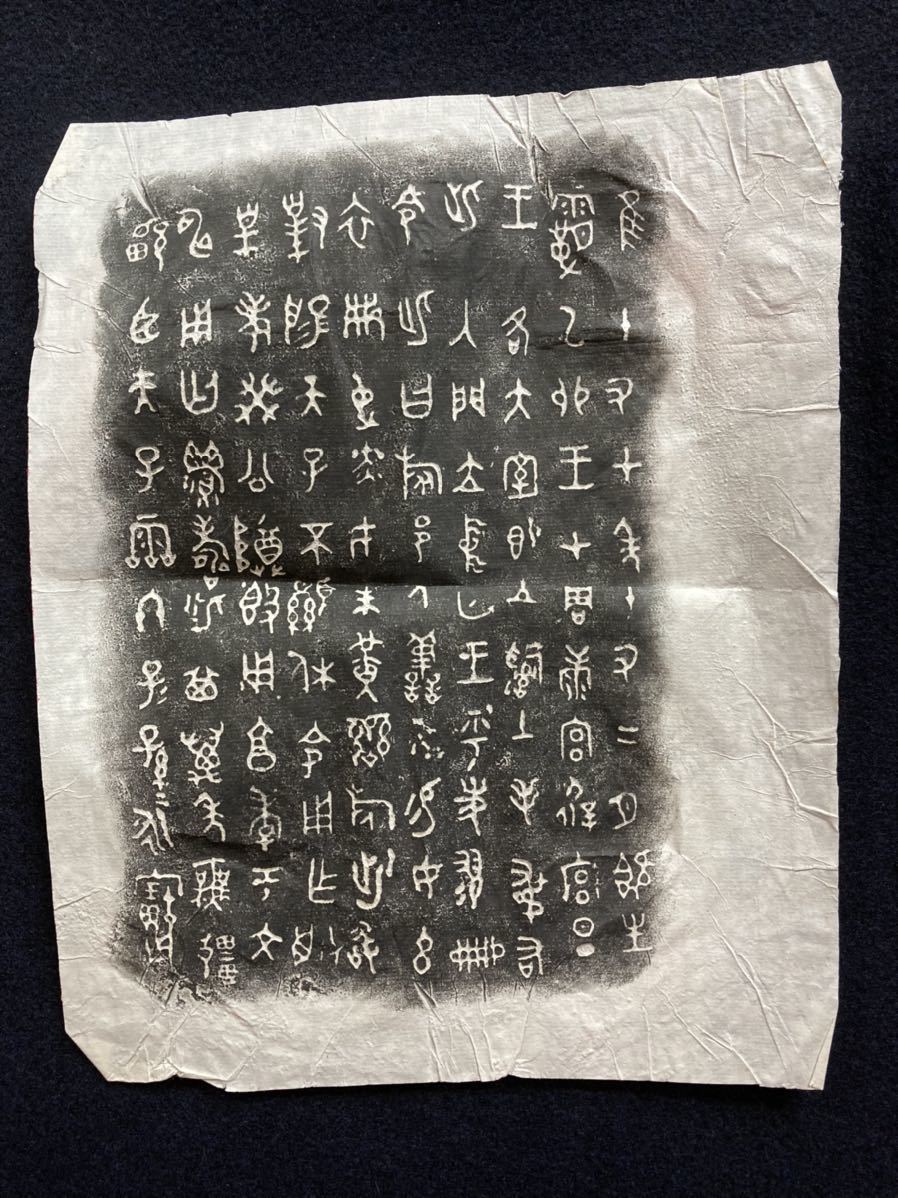 隹十又七年十又二月既生
霸乙卯王才周康宮徲宮旦
王各大室即立𤔲土毛弔右
此入門立中廷王乎史翏冊
令此曰旅邑人善夫易女玄
衣黹屯赤巿朱黃䜌旅此敢
對揚天子不顯休令用乍朕
皇考癸公尊簋用享孝于文
申用匄眉壽此其萬年無彊
畯臣天子霝冬子孫永寶用